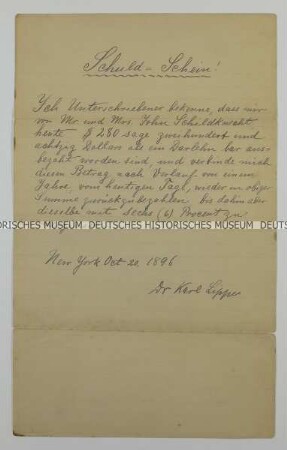 Schuld-Schein!
Ich Unterschriebener bekenne, dass mir
von Mr und Mrs. John Schildknecht
heute $ 280 sage zweihundert und
achtzig Dollars als ein Darlehn bar aus-
bezahlt worden sind, und verbinde mich
diesen Betrag nach Verlauf von einem
Jahre, vom heutigen Tage, wieder in obiger
Summe zurückzubezahlen bis dahin aber
ISCHES MUSEUM DEUTSCHES HISTORISCHES MUSEUM DEUTSCHES HISTORI
dieselbe mit sechs (6) Procent zu
New York Oct 22 1896
Dr Karl Lipper